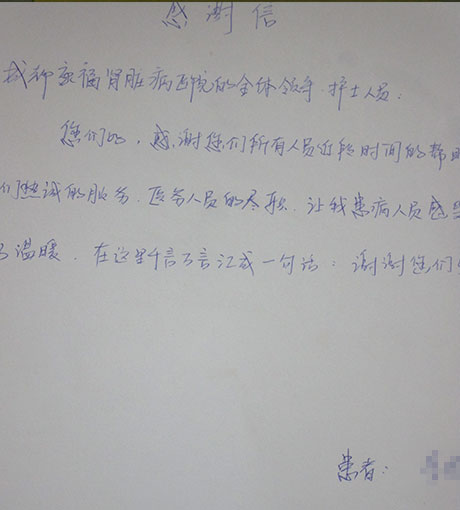 感谢信
邯郸家福肾脏病医院的全体领导、护士人员:
您们好,感谢您们所有人员近段时间的帮
们热诚的服务,医务人员的尽职,让我患病人员感
温暖,在这里千言万言汇成一句话:谢谢您们
患者: